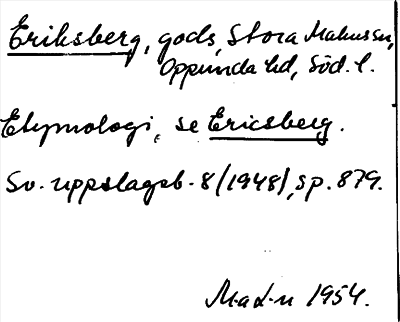 Eriksberg, gods, Stora Malms sn,
Oppunda hd, Söd. l.
Etymologi, se Ericsberg.
Sv. uppslagsb. 8 (1948), sp. 879.
M-a d-n 1954.